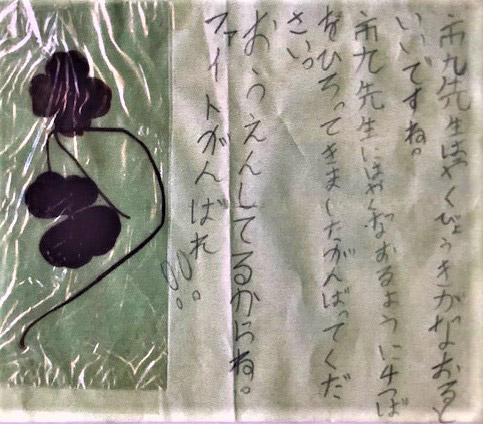 市九先生はやくびょうきがなおると
いいですね。
市九先生にはやくなおるように4つば
をひろってきましたがんばってくだ
さい。
おうえんしてるからね。
ファイトがんばれ!!